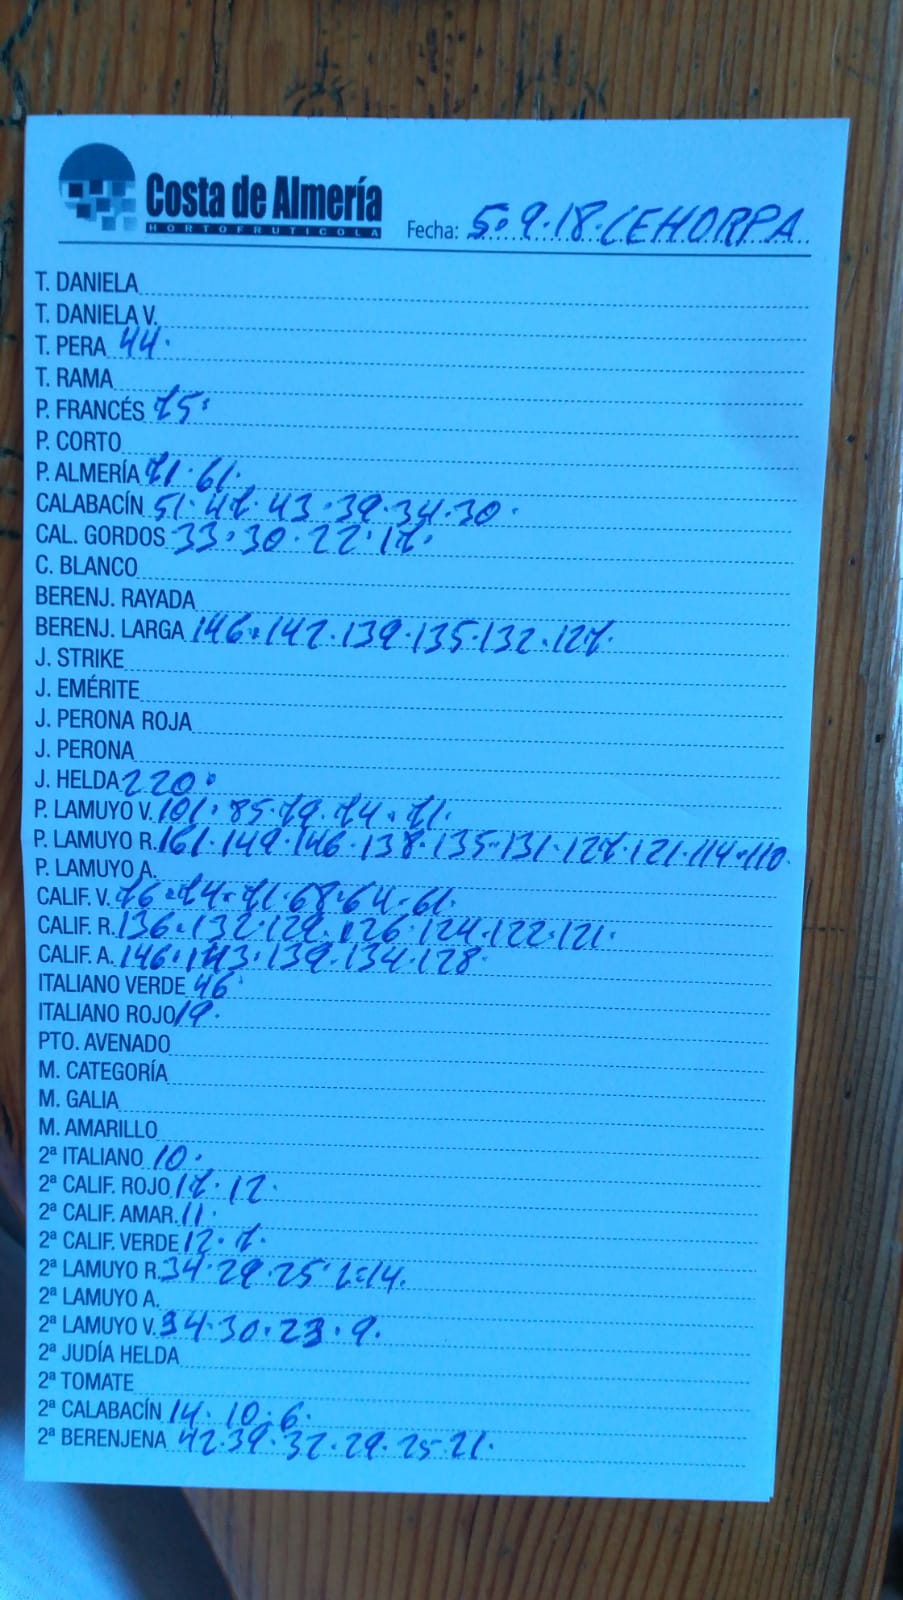 Costa de Almería
HORTOFRUTICOLA
Fecha: 5.9.18.CEHORPA
T. DANIELA
T. DANIELA V.
T. PERA 44.
T. RAMA
P. FRANCÉS 75.
P. CORTO
P. ALMERÍA 71.61.
CALABACÍN 51.47.43.39.34.30.
CAL. GORDOS 33.30.22.17.
C. BLANCO
BERENJ. RAYADA
BERENJ. LARGA 146.142.139.135.132.127.
J. STRIKE
J. EMÉRITE
J. PERONA ROJA
J. PERONA
J. HELDA 220.
P. LAMUYO V. 101.85.79.74.71.
P. LAMUYO R. 161.149.146.138.135.131.127.121.114.110.
P. LAMUYO A.
CALIF. V. 76.74.71.68.64.61.
CALIF. R. 136.132.129.126.124.122.121.
CALIF. A. 146.143.139.134.128.
ITALIANO VERDE 46.
ITALIANO ROJO 19.
PTO. AVENADO
M. CATEGORÍA
M. GALIA
M. AMARILLO
2ª ITALIANO 10.
2ª CALIF. ROJO 17.12.
2ª CALIF. AMAR. 11.
2ª CALIF. VERDE 12.7.
2ª LAMUYO R. 34.29.25. 14.
2ª LAMUYO A.
2ª LAMUYO V. 34.30.23.9.
2ª JUDÍA HELDA
2ª TOMATE
2ª CALABACÍN 14.10.6.
2ª BERENJENA 42.39.32.29.25.21.